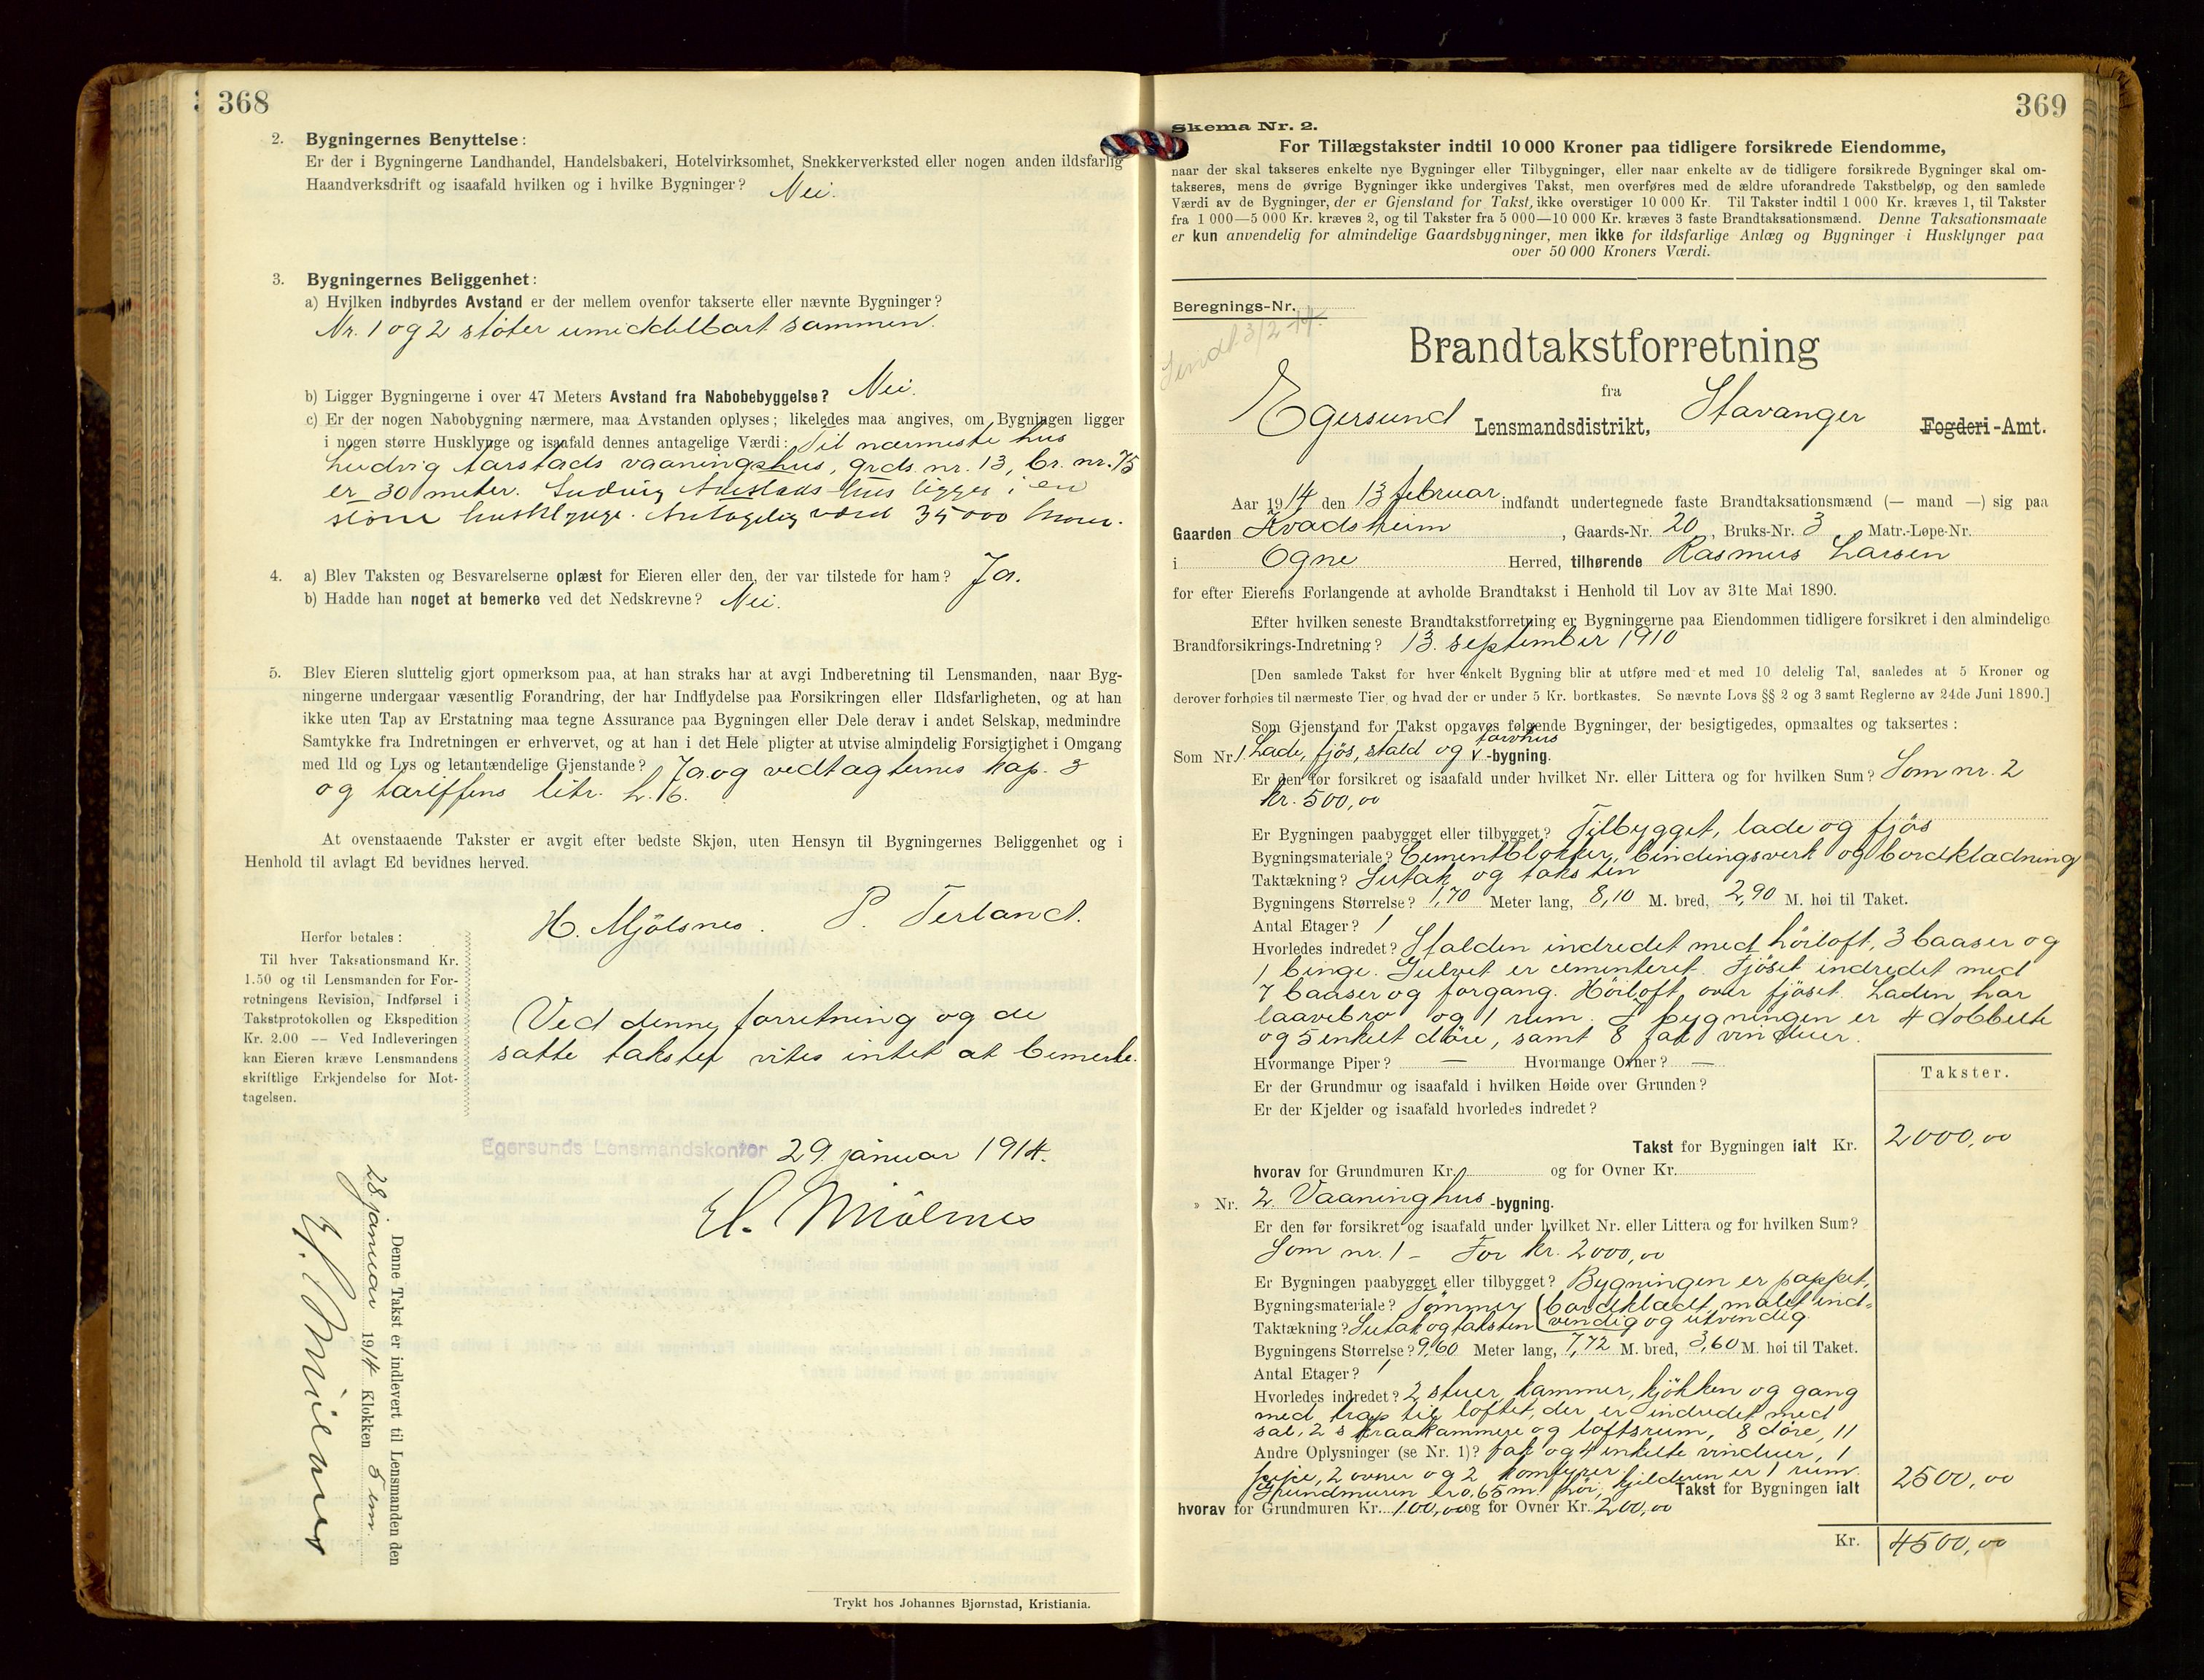 368
2. Bygningernes Benyttelse:
Er der i Bygningerne Landhandel, Handelsbakeri, Hotelvirksomhet, Snekkerverksted eller nogen anden ildsfarlig
Haandverksdrift og isaafald hvilken og i hvilke Bygninger? Nei.
3. Bygningernes Beliggenhet:
a) Hvilken indbyrdes Avstand er der mellem ovenfor takserte eller nævnte Bygninger?
Nr. 1 og 2 støter umiddelbart sammen.
b) Ligger Bygningerne i over 47 Meters Avstand fra Nabobebyggelse? Nei.
c) Er der nogen Nabobygning nærmere, maa Avstanden oplyses; likeledes maa angives, om Bygningen ligger
i nogen større Husklynge og isaafald dennes antagelige Værdi: Til nærmeste hus
Ludvig Aarstads vaaningshus, grds. nr. 13, br. nr. 75
er 30 meter. Ludvig Aarstads hus ligger i en
større husklynge. Antagelig værd 35000 kroner.
4. a) Blev Taksten og Besvarelserne oplæst for Eieren eller den, der var tilstede for ham? Ja.
b) Hadde han noget at bemerke ved det Nedskrevne? Nei.
5. Blev Eieren sluttelig gjort opmerksom paa, at han straks har at avgi Indberetning til Lensmanden, naar Byg-
ningerne undergaar væsentlig Forandring, der har Indflydelse paa Forsikringen eller Ildsfarligheten, og at han
ikke uten Tap av Erstatning maa tegne Assurance paa Bygningen eller Dele derav i andet Selskap, medmindre
Samtykke fra Indretningen er erhvervet, og at han i det Hele pligter at utvise almindelig Forsigtighet i Omgang
med Ild og Lys og letantændelige Gjenstande? Ja og vedtagternes kap. 3
og tariffens litr. L. 16.
At ovenstaaende Takster er avgit efter bedste Skjøn, uten Hensyn til Bygningernes Beliggenhet og i
Henhold til avlagt Ed bevidnes herved.
H. Mjölsnes. P. Terland.
Herfor betales:
Til hver Taksationsmand Kr.
1.50 og til Lensmanden for For-
retningens Revision, Indførsel i
Takstprotokollen og Ekspedition
Kr. 2.00 — Ved Indleveringen
kan Eieren kræve Lensmandens
skriftlige Erkjendelse for Mot-
tagelsen.
Ved denne forretning og de
satte takster vites intet at bemerke.
Egersunds Lensmandskontor 29. januar 1914.
H. Miölsnes
Denne Takst er indlevert til Lensmanden den
28 januar 1914 Klokken 5 em.
H. Miölsnes
Trykt hos Johannes Bjørnstad, Kristiania.
369
Skema Nr. 2.
For Tillægstakster indtil 10 000 Kroner paa tidligere forsikrede Eiendomme,
naar der skal takseres enkelte nye Bygninger eller Tilbygninger, eller naar enkelte av de tidligere forsikrede Bygninger skal om-
takseres, mens de øvrige Bygninger ikke undergives Takst, men overføres med de ældre uforandrede Takstbeløp, og den samlede
Værdi av de Bygninger, der er Gjenstand for Takst, ikke overstiger 10 000 Kr. Til Takster indtil 1 000 Kr. kræves 1, til Takster
fra 1 000—5 000 Kr. kræves 2, og til Takster fra 5 000—10 000 Kr. kræves 3 faste Brandtaksationsmænd. Denne Taksationsmaate
er kun anvendelig for almindelige Gaardsbygninger, men ikke for ildsfarlige Anlæg og Bygninger i Husklynger paa
over 50 000 Kroners Værdi.
Beregnings-Nr.
Sendt 3/2 14.
Brandtakstforretning
fra
Egersund Lensmandsdistrikt, Stavanger Fogderi-Amt.
Aar 1914 den 13 februar indfandt undertegnede faste Brandtaksationsmænd (— mand —) sig paa
Gaarden Kvadsheim, Gaards-Nr. 20, Bruks-Nr. 3, Matr.-Løpe-Nr.
i Ogne Herred, tilhørende Rasmus Larsen
for efter Eierens Forlangende at avholde Brandtakst i Henhold til Lov av 31te Mai 1890.
Efter hvilken seneste Brandtakstforretning er Bygningerne paa Eiendommen tidligere forsikret i den almindelige
Brandforsikrings-Indretning? 13. september 1910
[Den samlede Takst for hver enkelt Bygning blir at utføre med et med 10 delelig Tal, saaledes at 5 Kroner og
derover forhøies til nærmeste Tier, og hvad der er under 5 Kr. bortkastes. Se nævnte Lovs §§ 2 og 3 samt Reglerne av 24de Juni 1890.]
Som Gjenstand for Takst opgaves følgende Bygninger, der besigtigedes, opmaaltes og taksertes:
Som Nr. 1 Lade, fjös, stald og torvhus -bygning.
Er den før forsikret og isaafald under hvilket Nr. eller Littera og for hvilken Sum? Som nr. 2
kr. 500,00
Er Bygningen paabygget eller tilbygget? Tilbygget, lade og fjös
Bygningsmateriale? Cementblokker, bindingsverk og bordkladning
Taktækning? Sutak og taksten
Bygningens Størrelse? 1,70 Meter lang, 8,10 M. bred, 2,90 M. høi til Taket.
Antal Etager? 1
Hvorledes indredet? Stalden indredet med höiloft, 3 baaser og
1 binge. Gulvet er cementeret. Fjöset indredet med
7 baaser og forgang. Höiloft over fjöset. Laden har
laavebro og 1 rum. I bygningen er 4 dobbelte
og 5 enkelt döre, samt 8 fak vinduer.
Hvormange Piper? — Hvormange Ovner? —
Er der Grundmur og isaafald i hvilken Høide over Grunden?
Er der Kjelder og isaafald hvorledes indredet?
Takster.
Takst for Bygningen ialt Kr. 2000,00
hvorav for Grundmuren Kr. og for Ovner Kr.
» Nr. 2. Vaaninghus -bygning.
Er den før forsikret og isaafald under hvilket Nr. eller Littera og for hvilken Sum?
Som nr. 1 - For kr. 2000,00
Er Bygningen paabygget eller tilbygget? Bygningen er pappet,
Bygningsmateriale? Tömmer bordkladt, malet ind-
Taktækning? Sutak og taksten vendig og utvendig
Bygningens Størrelse? 9,60 Meter lang, 7,72 M. bred, 3,60 M. høi til Taket.
Antal Etager? 1
Hvorledes indredet? 2 stuer, kammer, kjökken og gang
med trap til loftet, der er indredet med
sal, 2 skraakammere og loftsrum, 8 döre, 11
Andre Oplysninger (se Nr. 1)? fak og 4 enkelte vinduer, 1
pipe, 2 ovner og 2 komfyrer, kjelderen er 1 rum.
Grundmuren er 0,65 m. höi, Takst for Bygningen ialt 2500,00
hvorav for Grundmuren Kr. 100,00 og for Ovner Kr. 200,00
Kr. 4500,00